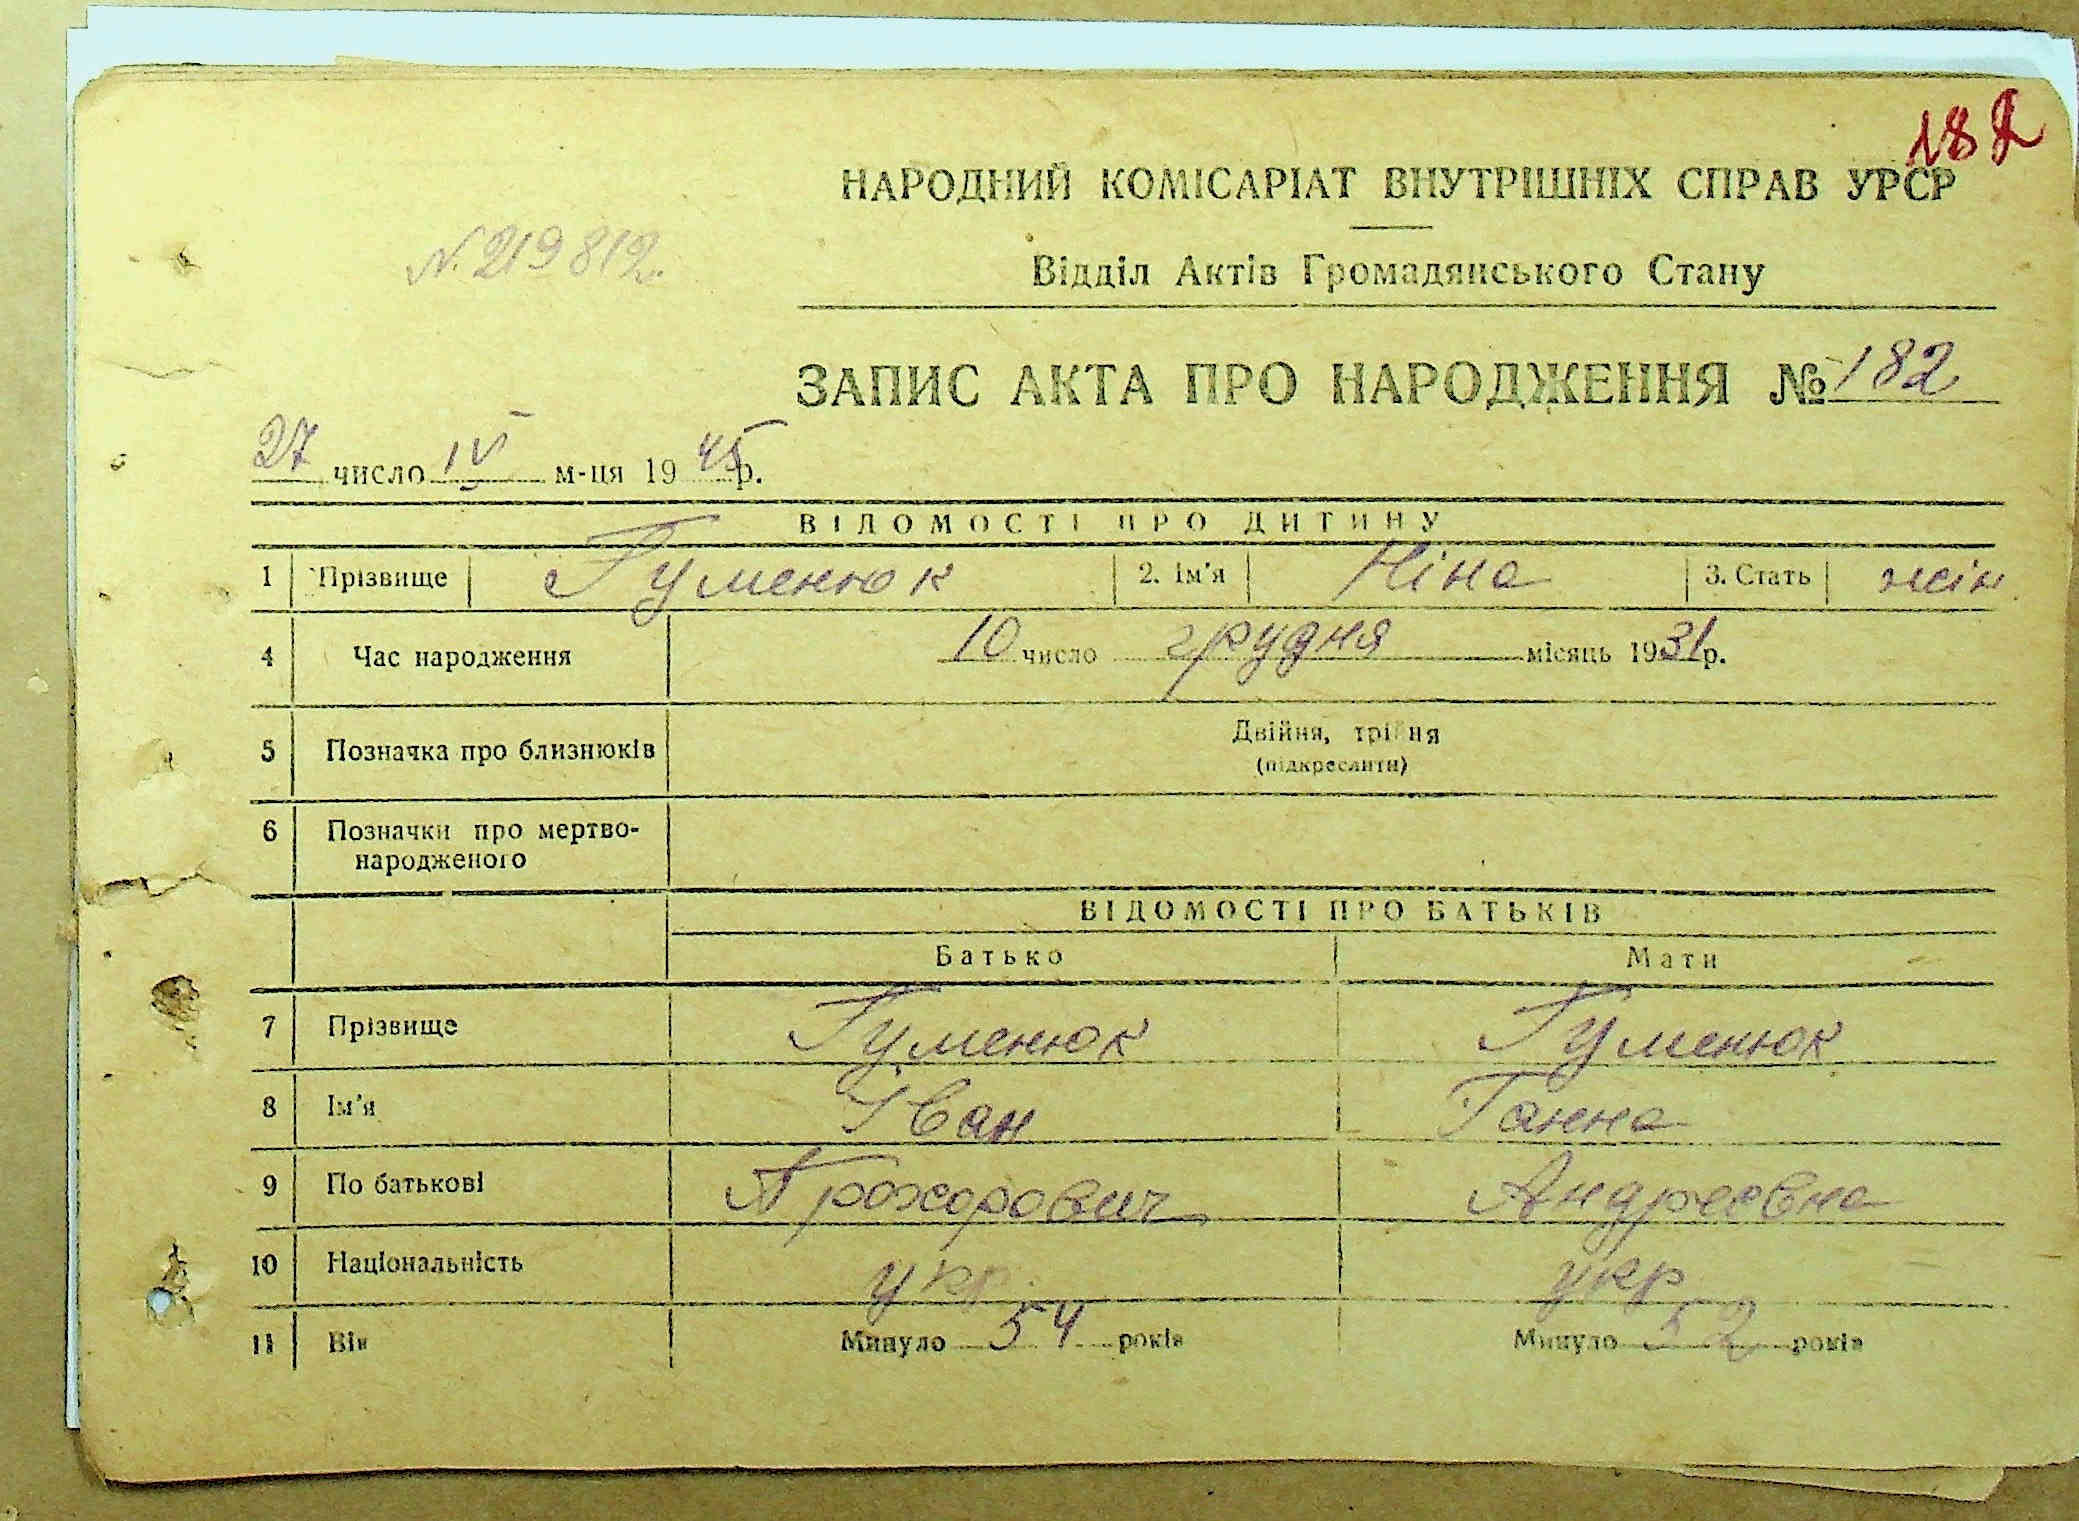 182
НАРОДНИЙ КОМІСАРІАТ ВНУТРІШНІХ СПРАВ УРСР
N. 219812
Відділ Актів Громадянського Стану
ЗАПИС АКТА ПРО НАРОДЖЕННЯ № 182
27 число IV м-ця 1945 р.
ВІДОМОСТІ ПРО ДИТИНУ
1 Прізвище Гуменюк 2. Ім'я Ніна 3. Стать жін.
4 Час народження 10 число грудня місяць 1931 р.
5 Позначка про близнюків Двійня, трійня
(підкреслити)
6 Позначки про мертво-
народженого
ВІДОМОСТІ ПРО БАТЬКІВ
Батько Мати
7 Прізвище Гуменюк Гуменюк
8 Ім'я Іван Ганна
9 По батькові Прохорович Андреєвна
10 Національність укр. укр
11 Вік Минуло 54 років Минуло 52 років